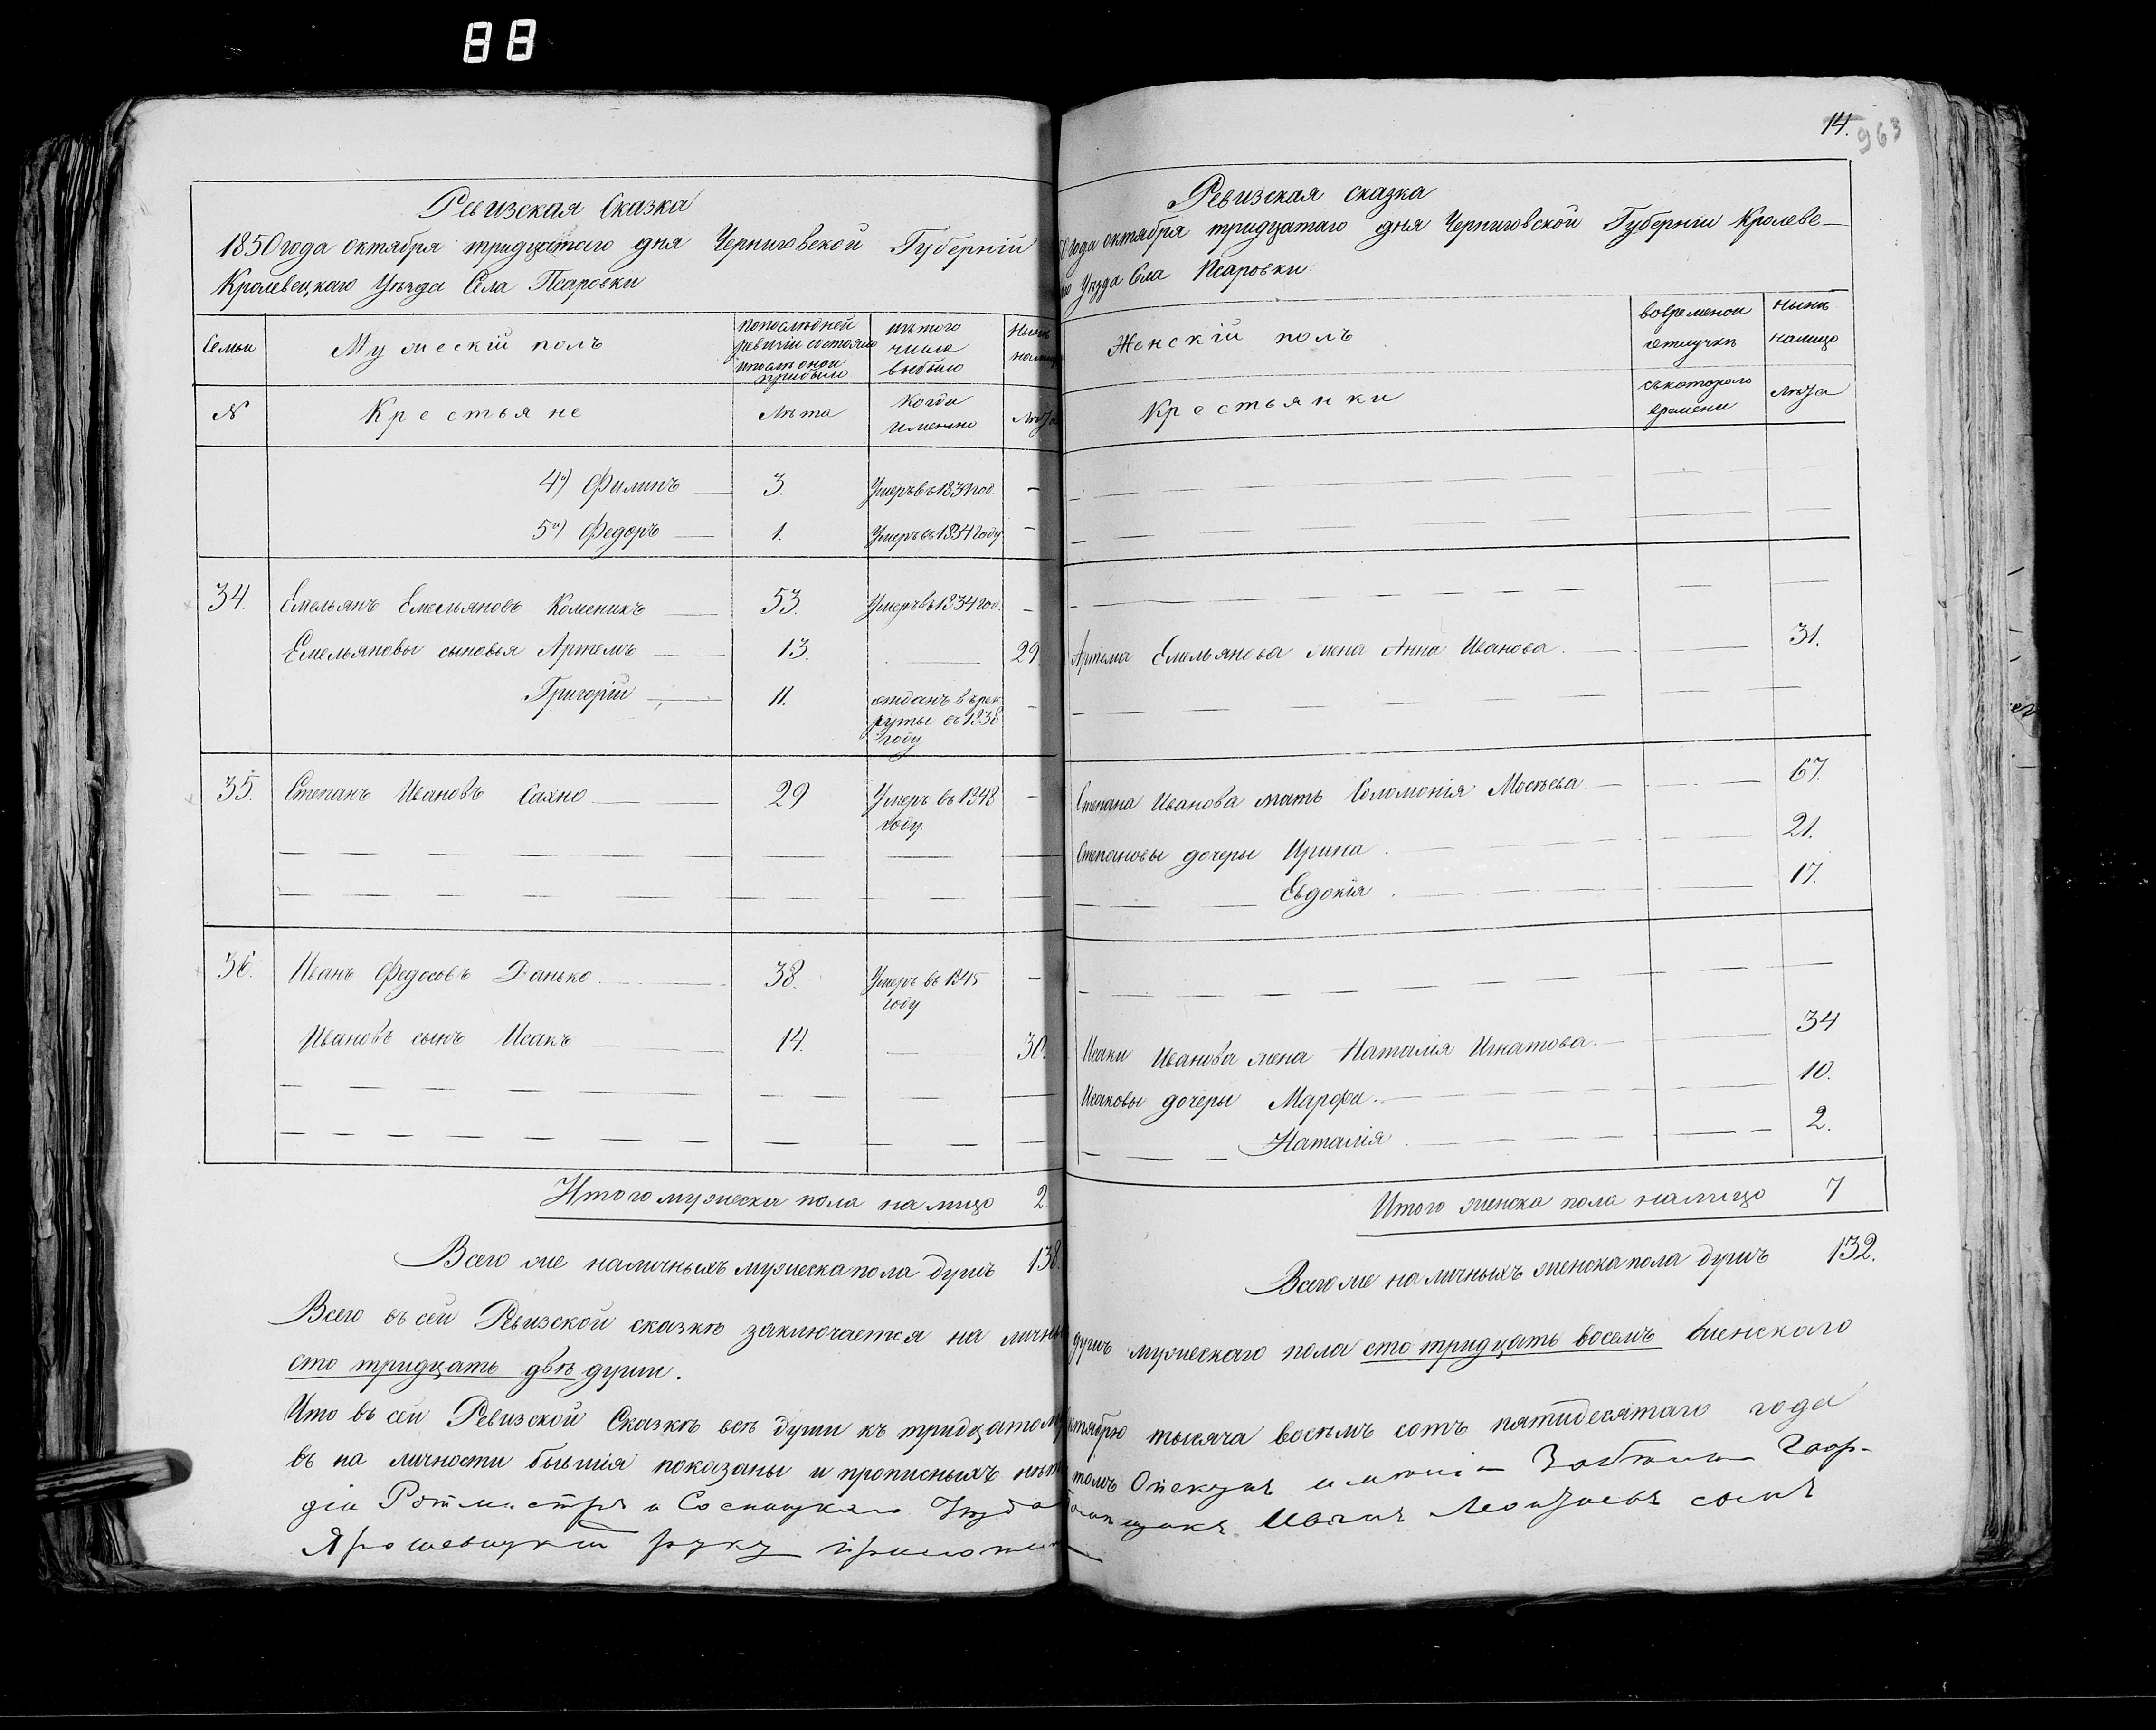 88
14.
963
Ревизская Сказка
1850 года октября тридцатаго дня Черниговской Губерніи
Кролевецкаго Уѣзда Села Псаровки
Семьи
Мужескій полъ
по последней ревизіи состояло и после оной прибыло
изъ того числа выбыло
Ныне на лицо
№
Крестьяне
Лѣта
Когда именно
Лѣта
4й) Филипъ 3. Умеръ въ 1834 год. -
5й) Федоръ 1. Умеръ въ 1834 году -
34. Емельянъ Емельяновъ Коменикъ 53. Умеръ въ 1834 год. -
Емельяновы сыновья Артемъ 13. 29.
Григорій 11. отданъ въ рекруты въ 1838 году -
35. Степанъ Ивановъ Сахно 29 Умеръ въ 1848 году. -
36. Иванъ Федосовъ Данько 38. Умеръ въ 1845 году -
Ивановъ сынъ Исакъ 14. 30.
Итого мужеска пола на лицо 2.
Всего же наличныхъ мужеска пола душъ 138.
Ревизская сказка
года октября тридцатаго дня Черниговской Губерніи Кролеве-
Уѣзда Села Псаровки
Женскій полъ
во временной отлучкѣ
нынѣ налицо
Крестьянки
съ котораго времени
Лѣта
Артема Емельянова жена Анна Иванова 31.
Степана Иванова мать Соломонія Мосѣева 67.
Степановы дочеры Ирина 21.
Евдокія 17.
Исаки Иванова жена Наталія Игнатова 34
Исаковы дочеры Марфа 10.
Наталія 2.
Итого женска пола налицо 7
Всего же наличныхъ женска пола душъ 132.
Всего въ сей Ревизской сказкѣ заключается на личны душъ мужескаго пола сто тридцать восемъ женскаго
сто тридцать двѣ души.
Что въ сей Ревизской Сказкѣ всѣ души къ тридцатому октябрю тысяча восемъ сотъ пятидесятаго года
въ на личности бывшія показаны и прописныхъ нѣтъ томъ Опекунъ имѣнія Гвар-
діи Ротмистра и Сосницкаго Уѣзда Помѣщика Иванъ сынъ
Ярошевицкій руку приложилъ